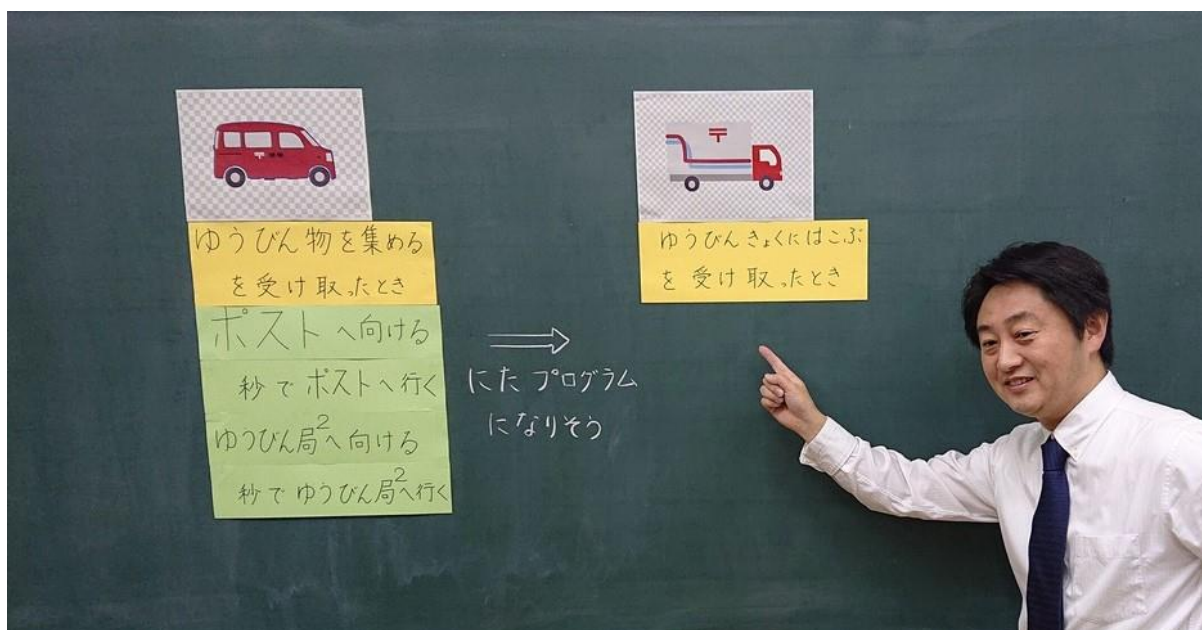 〒
ゆうびん物を集める
を受け取ったとき
ポストへ向ける
秒でポストへ行く
ゆうびん局2へ向ける
秒でゆうびん局2へ行く
にたプログラム
になりそう
〒
ゆうびんきょくにはこぶ
を受け取ったとき